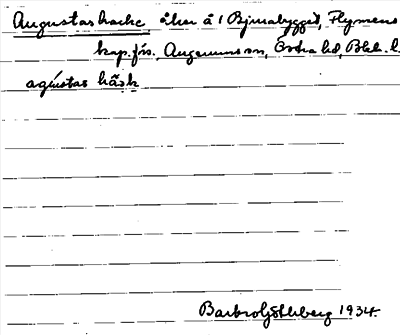 Augustashacke åker å 1 Bjmabygget, Flymens
kap.förs. Augerums sn, Östra hd, Blek. l.
agústas håsk
Barbro Söderberg 1934